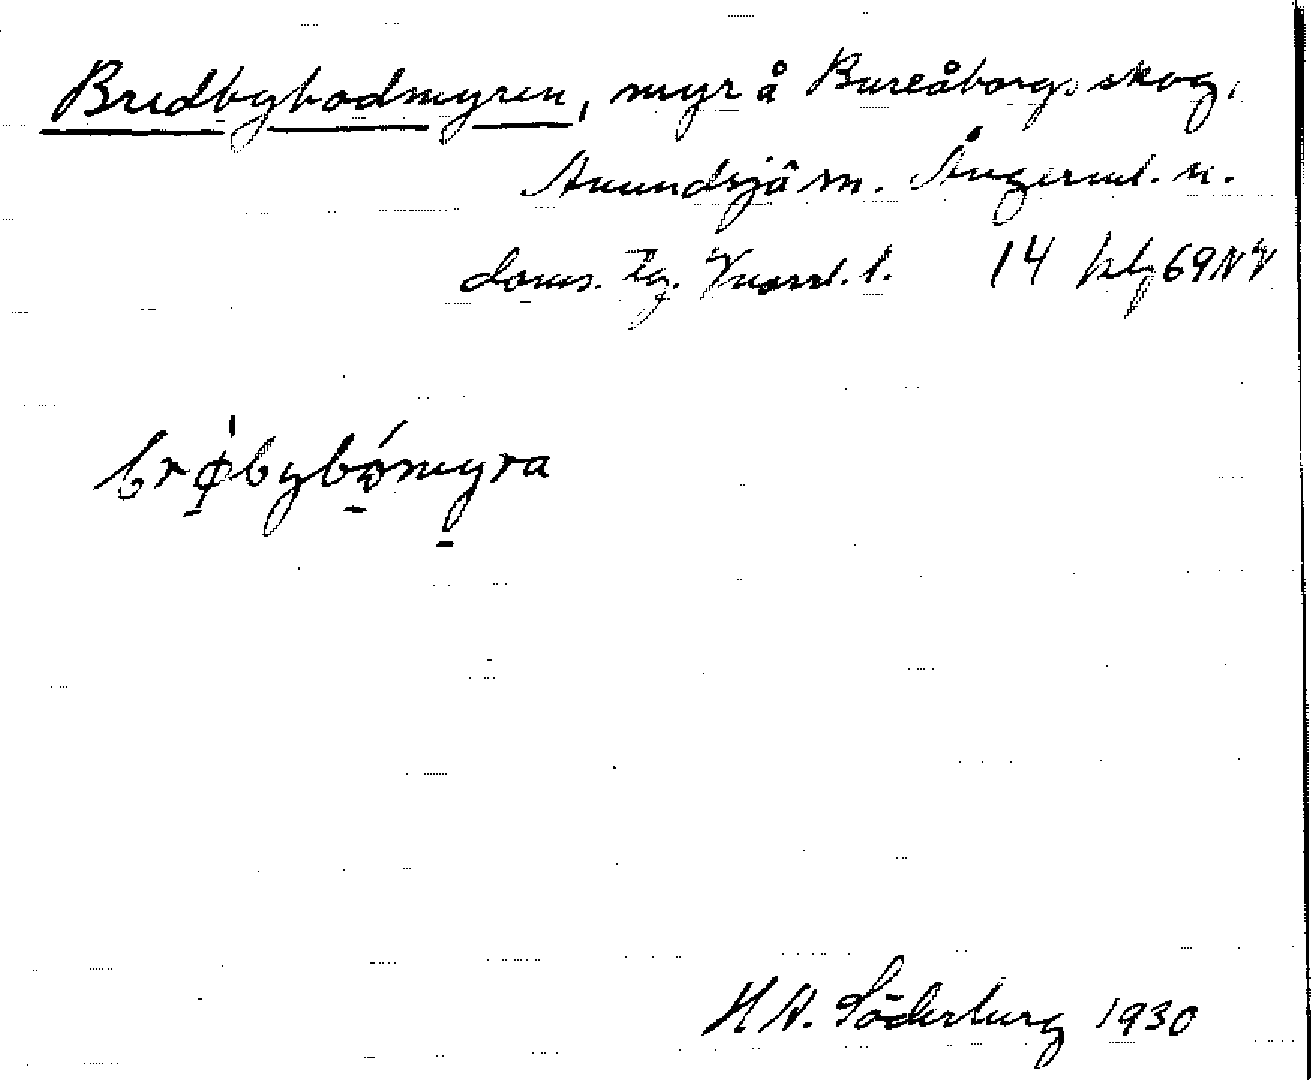 Bredbybodmyren, myr å Bureåborgs skog,
Anundsjö sn. Ångerml. n.
doms. tg. Vnorrl. l. 14 klg 69NV
brǿ̱bybó̱my̱ra
H A. Söderberg 1930